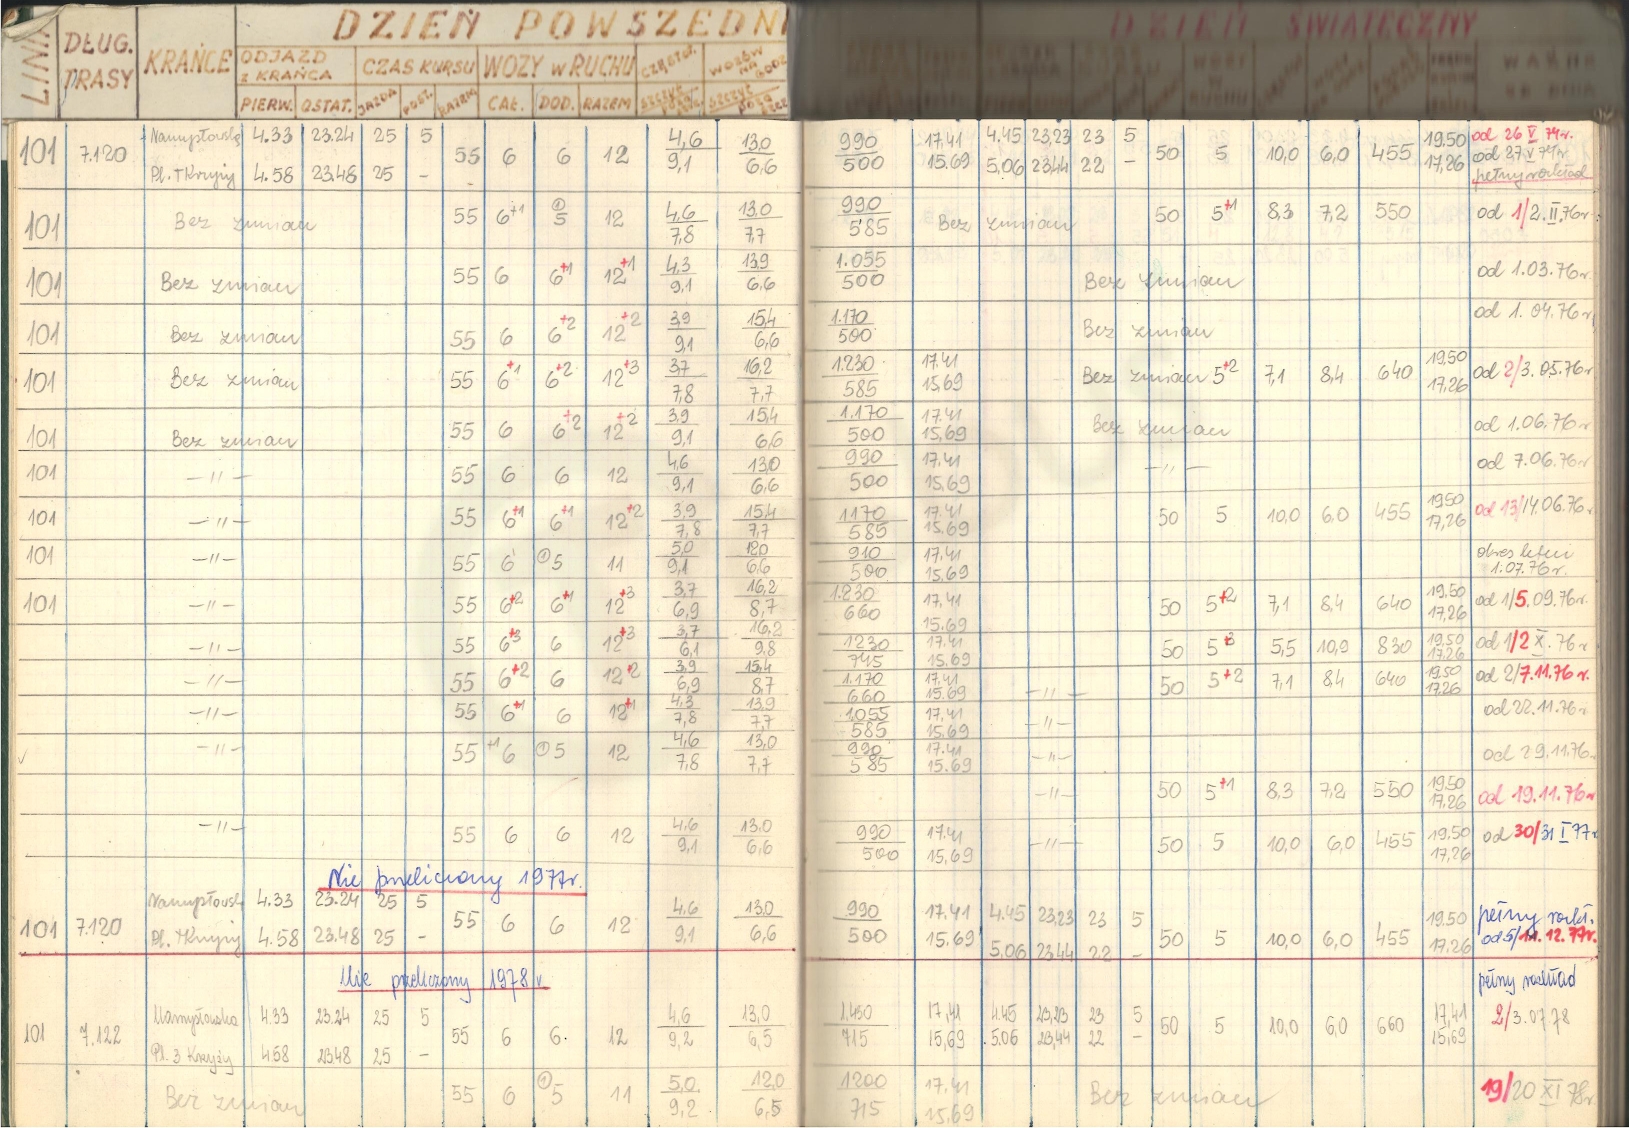 DZIEŃ POWSZEDNI DZIEŃ ŚWIĄTECZNY
LINIA DŁUG. TRASY KRAŃCE ODJAZD Z KRAŃCA CZAS KURSU WOZY W RUCHU CZĘSTOT. WOZÓW NA GODZ
PIERW. OSTAT. JAZDA POST. RAZEM CAŁ. DOD. RAZEM
Namysłowska 4.33 23.24 25 5 4,6 13,0 990 17.41 4.45 23,23 23 5 19.50 od 26 V 74r.
101 7.120 55 6 6 12 50 5 10,0 6,0 455 od 27 V 74r.
Pl. 3 Krzyży 4.58 23.48 25 - 9,1 6,6 500 15.69 5,06 23,44 22 - 17,26 pełny rozkład
101 Bez zmian 55 6+1 ① 5 12 4,6 13,0 990 Bez zmian 50 5+1 8,3 7,2 550 od 1/2.II.76r.
7,8 7,7 585
101 Bez zmian 55 6 6+1 12+1 4,3 13,9 1.055 Bez zmian od 1.03.76r.
9,1 6,6 500
101 Bez zmian 55 6 6+2 12+2 3,9 15,4 1.170 Bez zmian od 1.04.76r
9,1 6,6 500
101 Bez zmian 55 6+1 6+2 12+3 3,7 16,2 1.230 17.41 Bez zmian 5+2 7,1 8,4 640 19,50 od 2/3.05.76r
7,8 7,7 585 15,69 17,26
101 Bez zmian 55 6 6+2 12+2 3,9 15,4 1.170 17.41 Bez zmian od 1.06.76r
9,1 6,6 500 15,69
101 —〃— 55 6 6 12 4,6 13,0 990 17.41 —〃— od 7.06.76r
9,1 6,6 500 15,69
101 —〃— 55 6+1 6+1 12+2 3,9 15,4 1170 17.41 50 5 10,0 6,0 455 19,50 od 13/14.06.76r.
7,8 7,7 585 15.69 17,26
101 —〃— 55 6 ① 5 11 5,0 12,0 910 17.41 okres letni
9,1 6,6 500 15.69 1.07.76r.
101 —〃— 55 6+2 6+1 12+3 3,7 16,2 1.230 17.41 50 5+2 7,1 8,4 640 19,50 od 1/5.09.76r.
6,9 8,7 660 15.69 17,26
—〃— 55 6+3 6 12+3 3,7 16,2 1230 17.41 50 5+3 5,5 10,9 830 19,50 od 1/2 X. 76r
6,1 9,8 745 15.69 17.26
—〃— 55 6+2 6 12+2 3,9 15,4 1.170 17,41 —〃— 50 5+2 7,1 8,4 640 19,50 od 2/7.11.76 r.
6,9 8,7 660 15.69 17.26
—〃— 55 6+1 6 12+1 4,3 13,9 1.055 17.41 —〃— od 22.11.76r.
7,8 7,7 585 15.69
—〃— 55 +1 6 ① 5 12 4,6 13,0 990 17.41 —〃— od 29.11.76r.
7,8 7,7 585 15.69
—〃— 50 5+1 8,3 7,2 550 19.50 od 19.11.76r
17,26
—〃— 55 6 6 12 4,6 13,0 990 17.41 —〃— 50 5 10,0 6,0 455 19,50 od 30/31 I 77r
9,1 6,6 500 15,69 17,26
Nie przeliczony 1977r.
Namysłowsk 4.33 23.24 25 5 4,6 13,0 990 17.41 4.45 23,23 23 5 19.50 pełny rozkł.
101 7.120 55 6 6 12 50 5 10,0 6,0 455 od 5/11.12.77r.
Pl. 3 Krzyży 4.58 23.48 25 - 9,1 6,6 500 15.69 5.06 23,44 22 - 17,26
Nie przeliczony 1978 r pełny rozkład
Namysłowska 4.33 23.24 25 5 4,6 13,0 1.450 17,41 4.45 23,23 23 5 17,41 2/3.07 78
101 7.122 55 6 6. 12 50 5 10,0 6,0 660
Pl. 3 Krzyży 4.58 23.48 25 - 9,2 6,5 715 15,69 5.06 23,44 22 - 15,69
Bez zmian 55 6 ① 5 11 5,0 12,0 1200 17.41 Bez zmian 19/20 XI 78r.
9,2 6,5 715 15,69